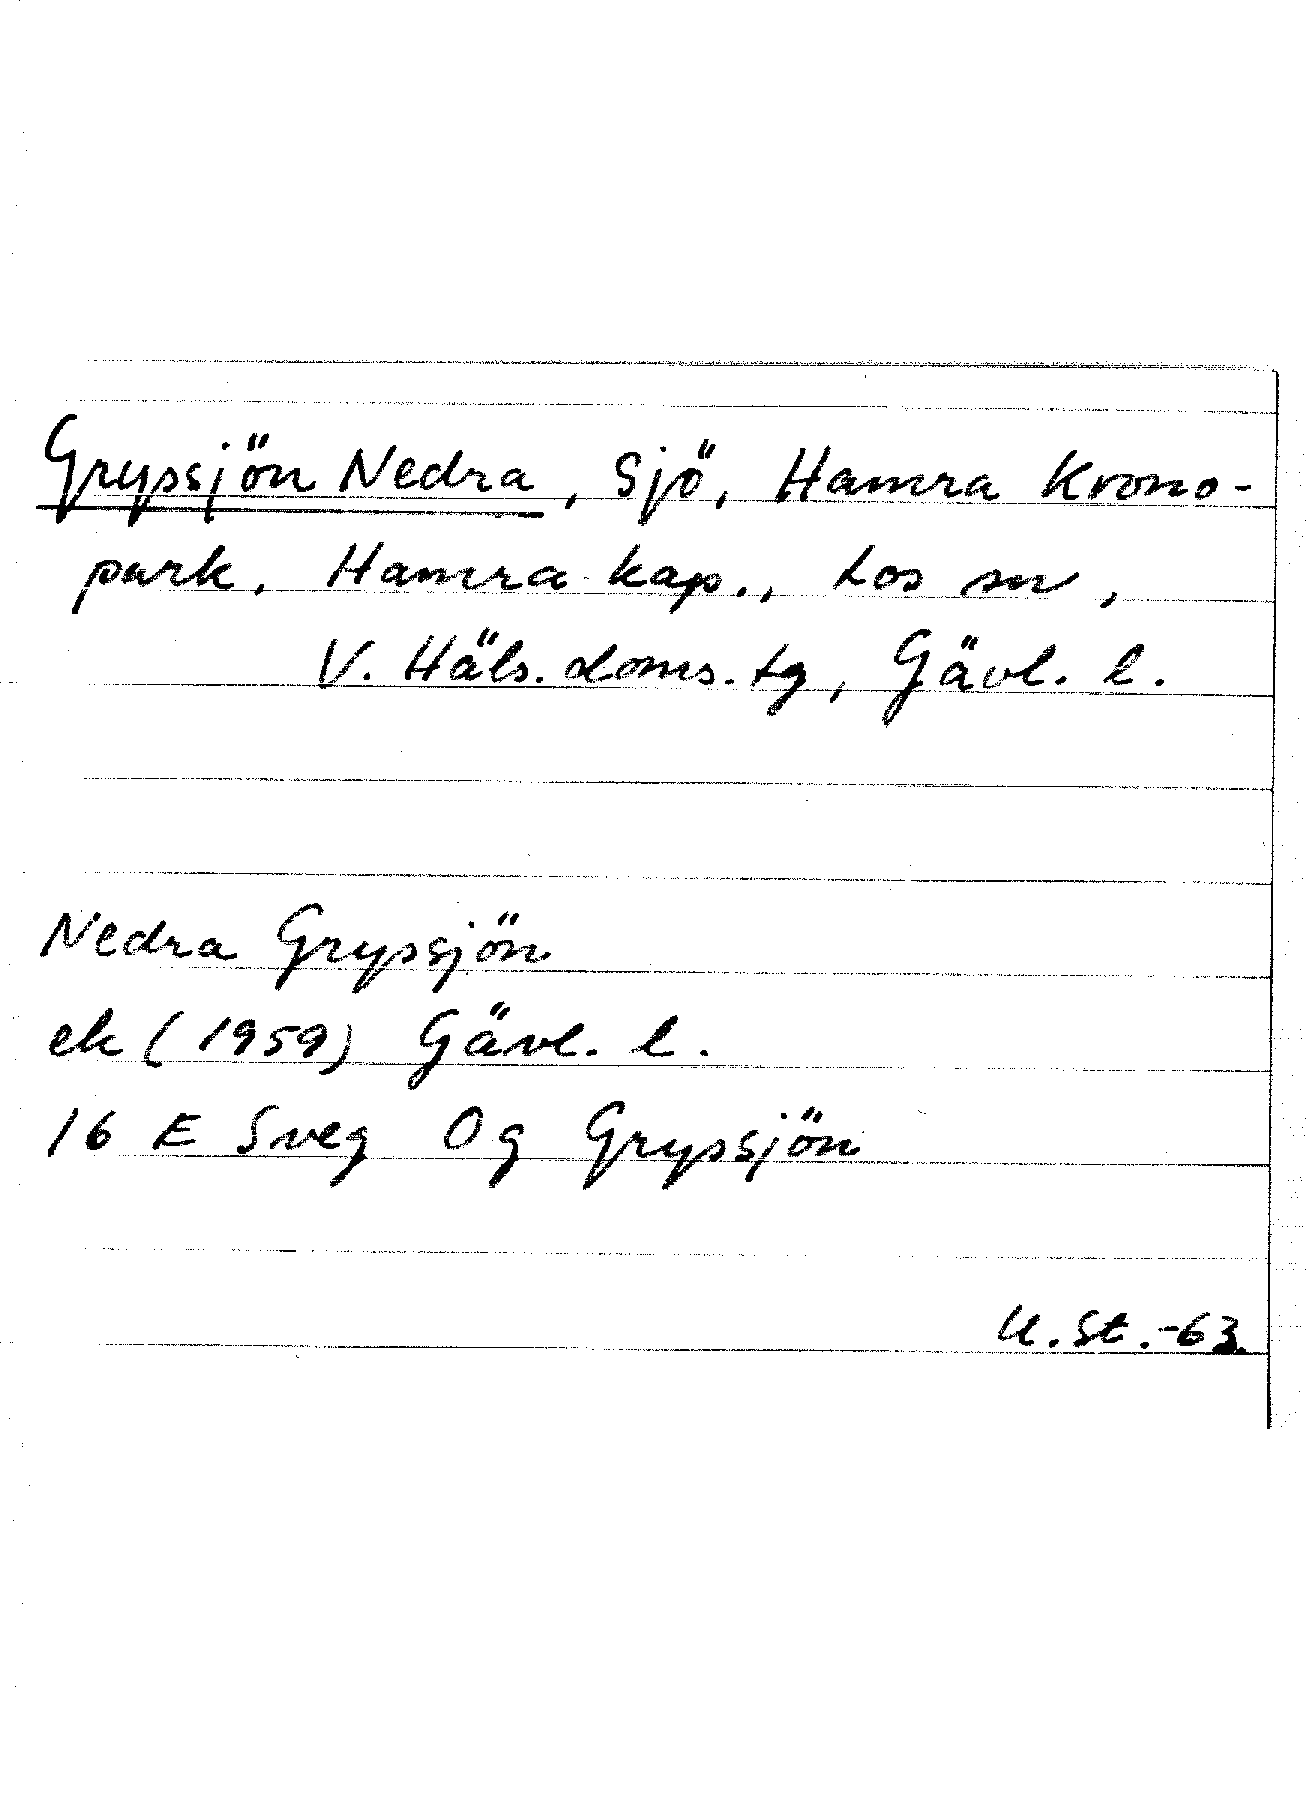 Grypsjön Nedra, Sjö, Hamra Krono-
park, Hamra kap., Los sn,
V. Häls. doms. tg, Gävl. l.
Nedra Grypsjön
ek (1959) Gävl. l.
16 E Sveg Og Grypsjön
U. St. -63.